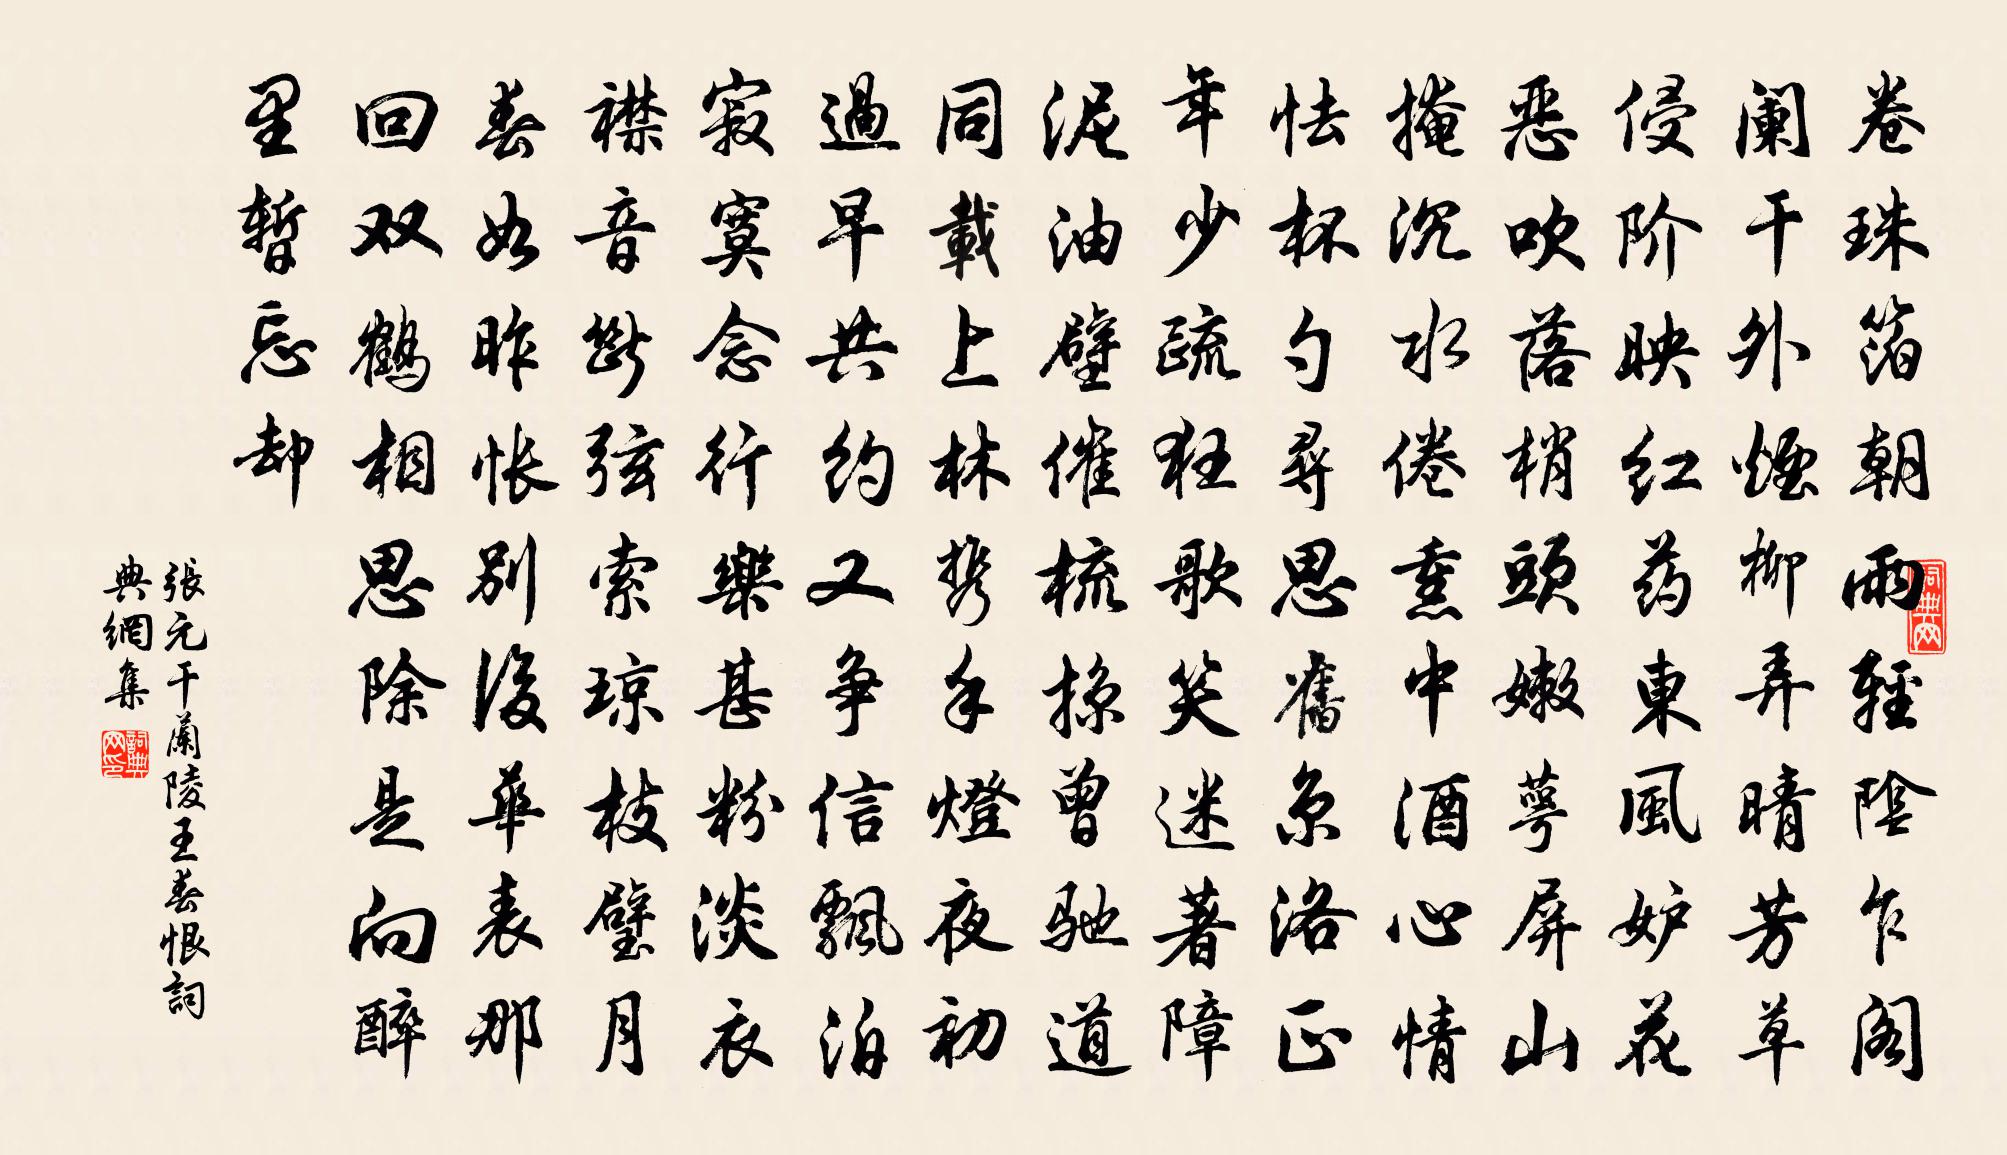 卷珠箔朝雨輕陰乍阁
阑干外煙柳弄晴芳草
侵阶映红药東風妒花
惡吹落梢頭嫩萼屏山
掩沉水倦熏中酒心情
怯杯勺尋思舊京洛正
年少疏狂歌笑迷著障
泥油壁催梳掠曾馳道
同載上林携手燈夜初
過早共约又争信飄泊
寂寞念行樂甚粉淡衣
襟音断弦索琼枝璧月
春如昨怅别後華表那
回双鶴相思除是向醉
里暫忘却
張元干蘭陵王春恨詞
典網集
词典网
詞典网印